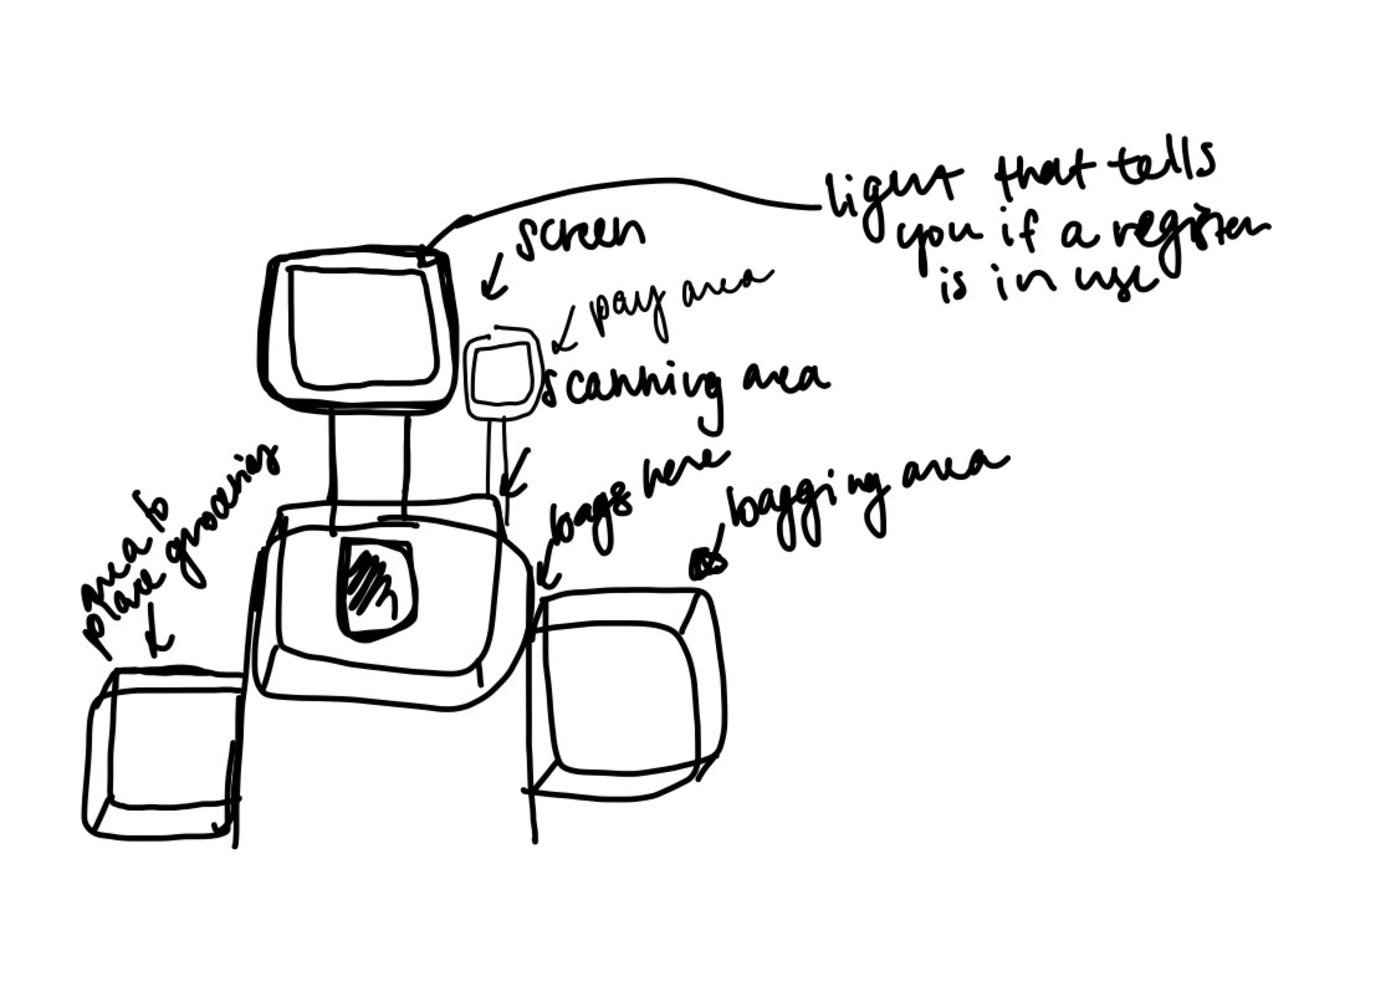 light that tells
you if a register
is in use
screen
pay area
scanning area
bags here
bagging area
area to
place groceries